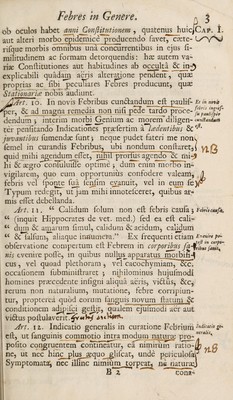 Febres in Genere. 3
ob oculos habet anni Constitutionem, quatenus huic CAP. I.
aut alteri morbo epidemicè producendo favet, cæte-
risque morbis omnibus unà concurrentibus in ejus si-
militudinem ac formam detorquendis: hæ autem va-
riæ Constitutiones aut habitudines ab occultâ & in-
explicabili quâdam aëris alteratione pendent, quæ
proprias ac sibi peculiares Febres producunt, quæ
Stationariæ nobis audiunt.
Art. 10. In novis Febribus cunctandum est paulis-
per, & ad magna remedia non nisi pede tardo proce-
dendum; interim morbi Genium ac morem diligen-
ter pensitando Indicationes præsertim à lædentibus &
juvantibus sumendæ sunt; neque pudet fateri me non
semel in curandis Febribus, ubi nondum constaret,
quid mihi agendum esset, nihil prorsus agendo & mi-
hi & ægro consuluisse optimè; dum enim morbo in-
vigilarem, quo eum opportuniùs confodere valeam,
febris vel sponte suâ sensim evanuit, vel in eum se
Typum redegit, ut jam mihi innotesceret, quibus ar-
mis esset debellanda.
Art. 11. “Calidum solum non est febris causa; Febris causa.
“ (inquit Hippocrates de vet. med.) sed ea est cali-
“ dum & amarum simul, calidum & acidum, calidum
“ & salsum, aliaque innumera.” Ex frequenti etiam
observatione compertum est Febrem in corporibus sa-
nis evenire posse, in quibus nullus apparatus morbifi-
cus, vel quoad plethoram, vel cacochymiam, &c.
occasionem subministraret; nihilominus hujusmodi
homines præcedente insigni aliquâ aëris, victûs, &c,
rerum non naturalium, mutatione, febre corripiun-
tur, proptereà quod eorum sanguis novum statum &
conditionem adipisci gestit, qualem ejusmodi aër aut
victus postulaverit.
Art. 12. Indicatio generalis in curatione Febrium
est, ut sanguinis commotio intra modum naturæ pro-
posito congruentem contineatur, eâ nimirum ratio-
ne, ut nec hinc plus æquo gliscat, undè periculosa
Symptomata, nec illinc nimium torpeat, nè naturæ
B 2 cona-